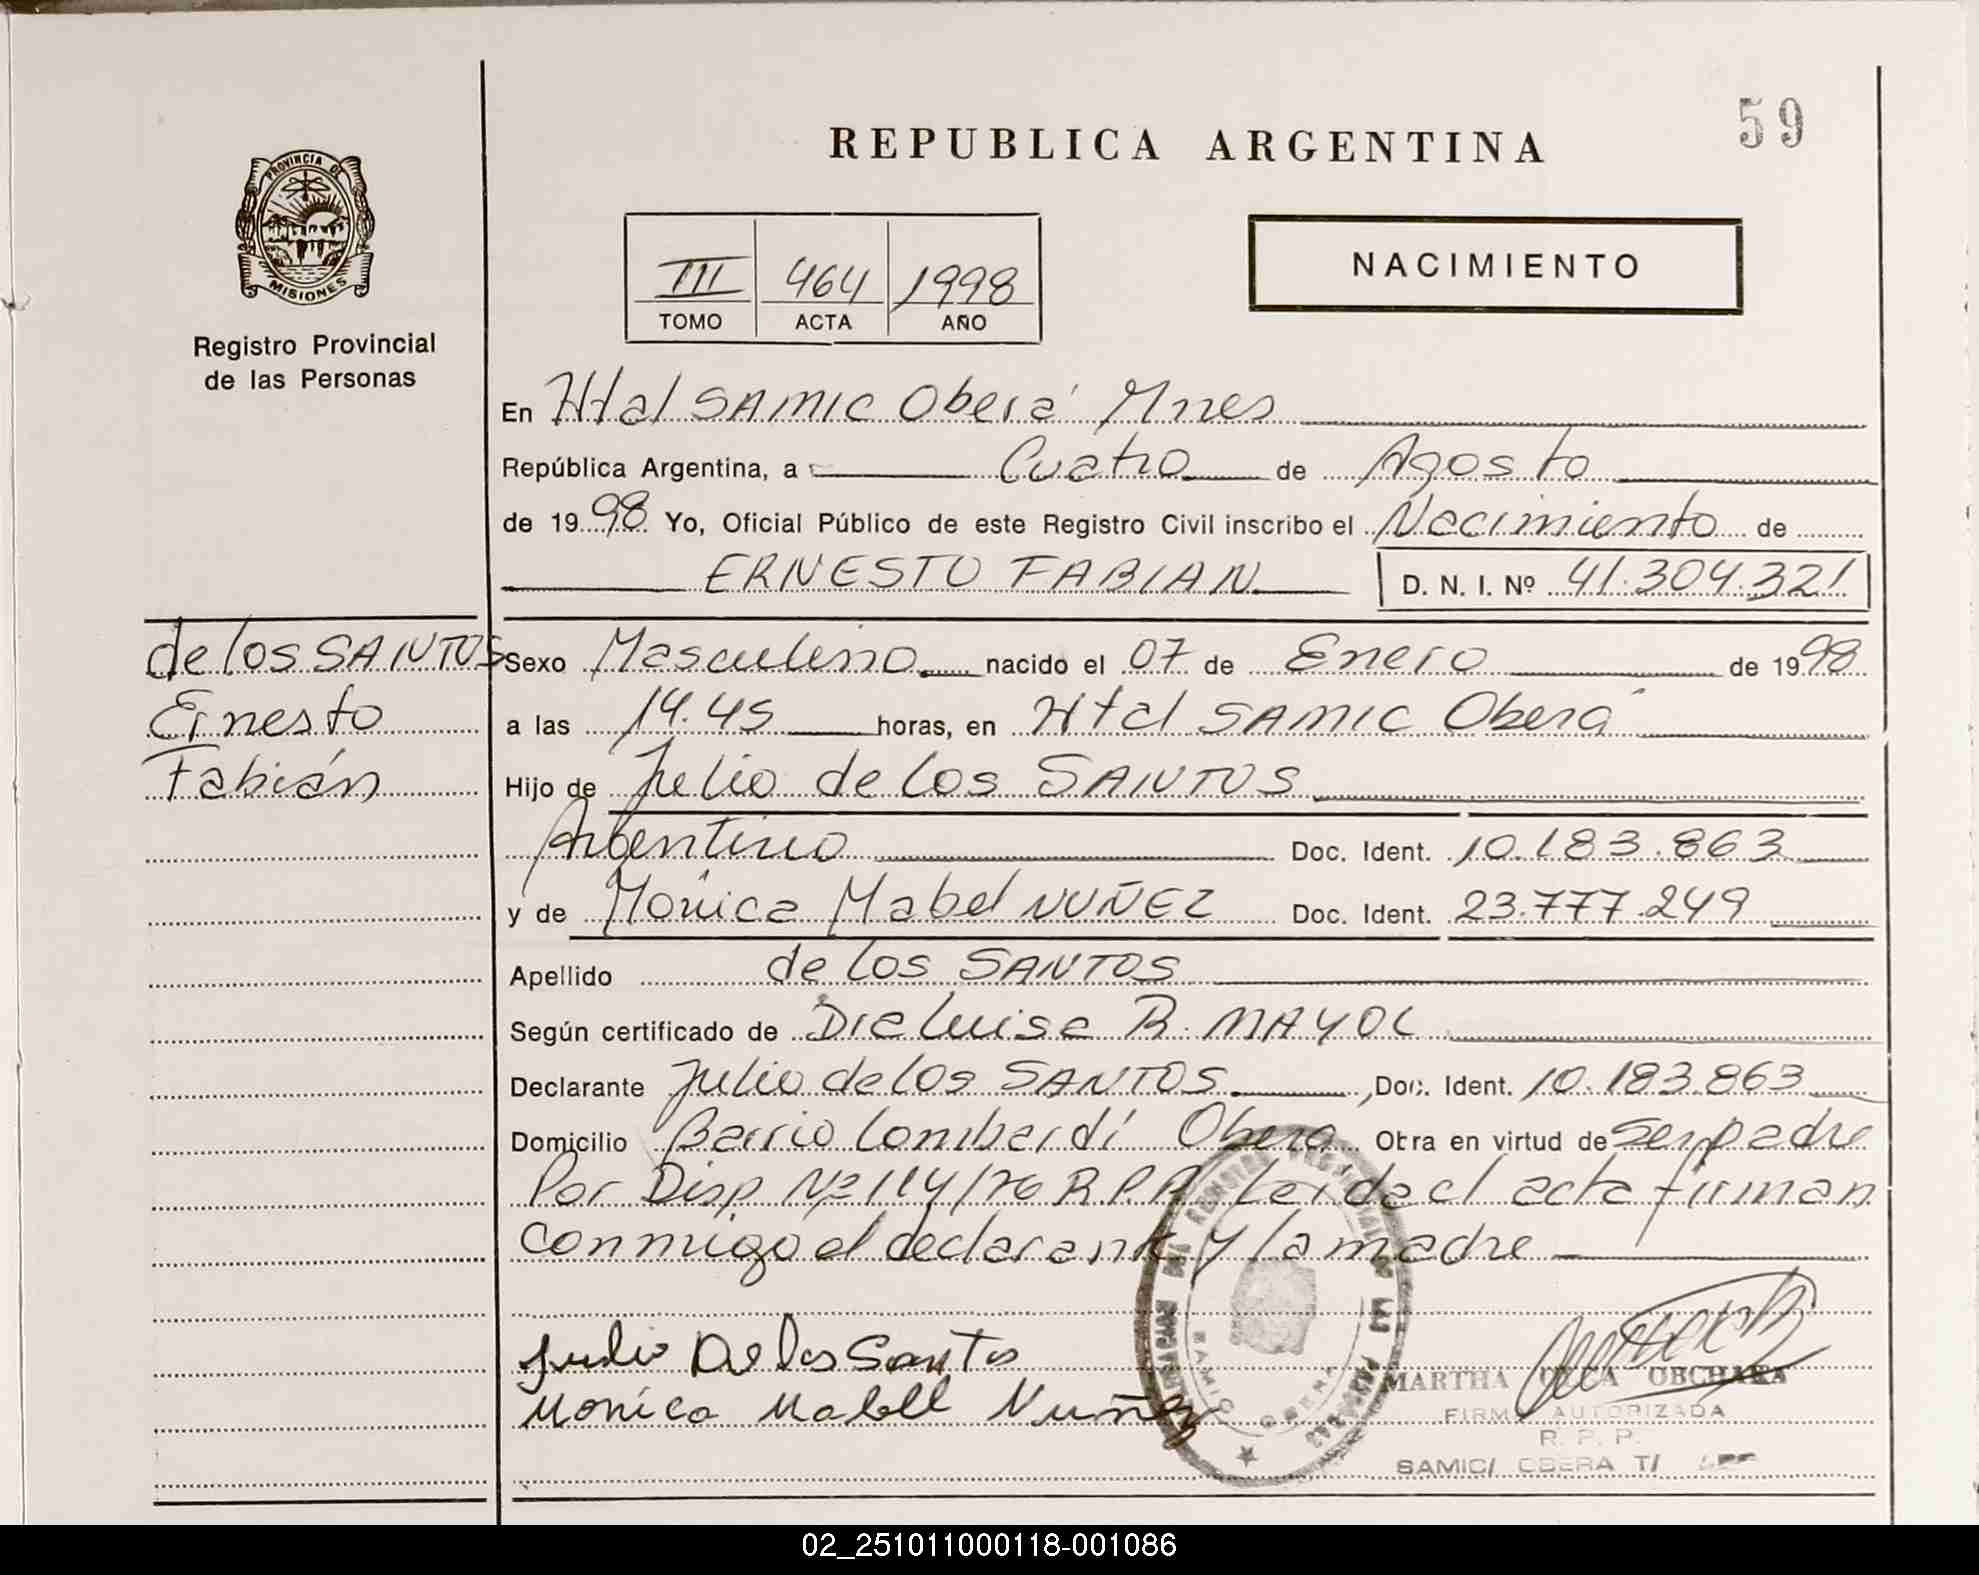 59
REPUBLICA ARGENTINA
PROVINCIA DE
MISIONES
Registro Provincial
de las Personas
III 464 1998
TOMO ACTA AÑO
NACIMIENTO
En Htal SAMIC Oberá Mnes
República Argentina, a Cuatro de Agosto
de 1998 Yo, Oficial Público de este Registro Civil inscribo el Nacimiento de
ERNESTO FABIAN D. N. I. Nº 41.304.321
de los SANTOS
Ernesto
Fabián
Sexo Masculino nacido el 07 de Enero de 1998
a las 14.45 horas, en Htal SAMIC Oberá
Hijo de Julio de los SANTOS
Argentino Doc. Ident. 10.183.863
y de Mónica Mabel NUÑEZ Doc. Ident. 23.777.249
Apellido de los SANTOS
Según certificado de Dra Luisa R. MAYOL
Declarante Julio de los SANTOS, Doc. Ident. 10.183.863
Domicilio Barrio Lombardi Oberá Obra en virtud de ser padre
Por Disp Nº 114/76 R.P.P. Leída el acta firman
conmigo el declarante y la madre
Julio De los Santos
Monica Mabell Nuñez
MARTHA OBCHARA
FIRMA AUTORIZADA
R. P. P.
SAMIC/ OBERA
02_251011000118-001086